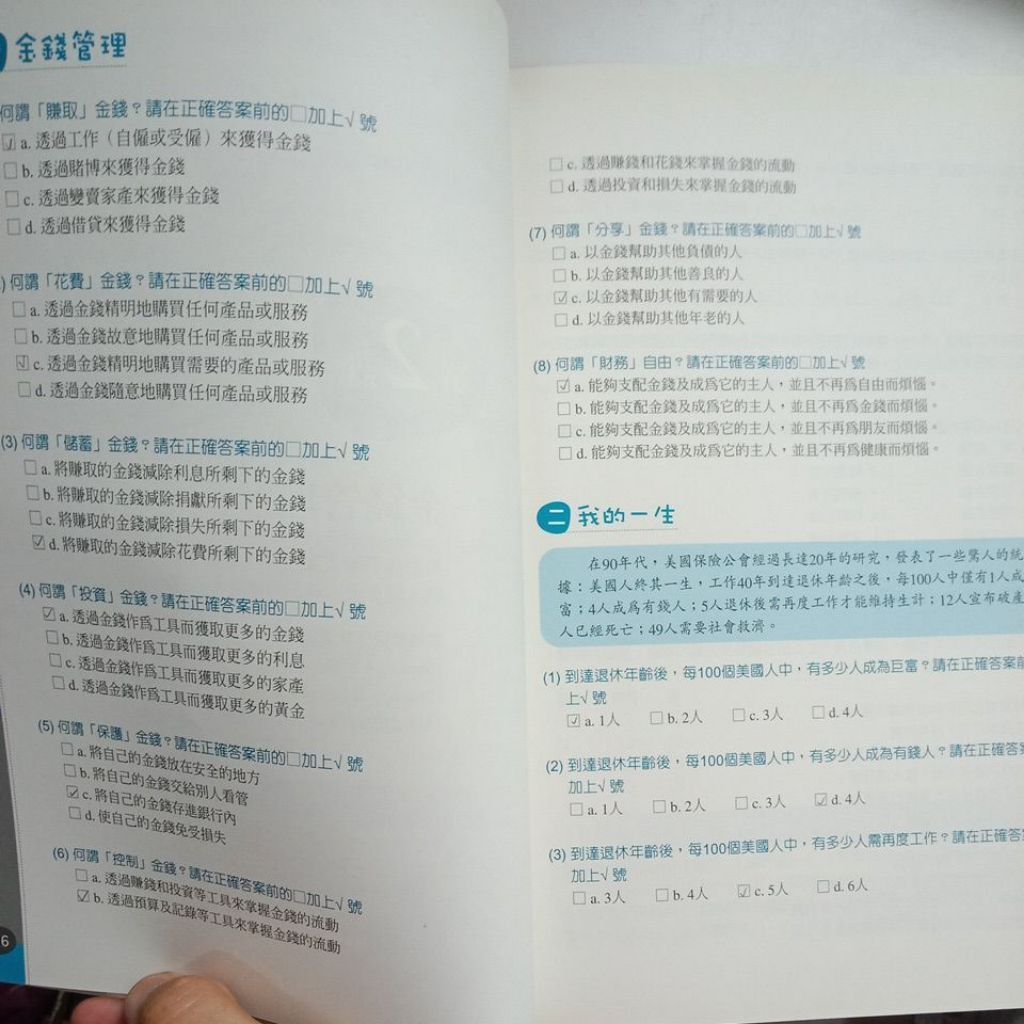 金錢管理
何謂「賺取」金錢？請在正確答案前的□加上√號
☑a. 透過工作（自僱或受僱）來獲得金錢
□b. 透過賭博來獲得金錢
□c. 透過變賣家產來獲得金錢
□d. 透過借貸來獲得金錢
) 何謂「花費」金錢？請在正確答案前的□加上√號
□a. 透過金錢精明地購買任何產品或服務
□b. 透過金錢故意地購買任何產品或服務
☑c. 透過金錢精明地購買需要的產品或服務
□d. 透過金錢隨意地購買任何產品或服務
(3) 何謂「儲蓄」金錢？請在正確答案前的□加上√號
□a. 將賺取的金錢減除利息所剩下的金錢
□b. 將賺取的金錢減除捐獻所剩下的金錢
□c. 將賺取的金錢減除損失所剩下的金錢
☑d. 將賺取的金錢減除花費所剩下的金錢
(4) 何謂「投資」金錢？請在正確答案前的□加上√號
☑a. 透過金錢作爲工具而獲取更多的金錢
□b. 透過金錢作爲工具而獲取更多的利息
□c. 透過金錢作爲工具而獲取更多的家產
□d. 透過金錢作爲工具而獲取更多的黃金
(5) 何謂「保護」金錢？請在正確答案前的□加上√號
□a. 將自己的金錢放在安全的地方
□b. 將自己的金錢交給別人看管
☑c. 將自己的金錢存進銀行內
□d. 使自己的金錢免受損失
(6) 何謂「控制」金錢？請在正確答案前的□加上√號
□a. 透過賺錢和投資等工具來掌握金錢的流動
☑b. 透過預算及記錄等工具來掌握金錢的流動
6
□c. 透過賺錢和花錢來掌握金錢的流動
□d. 透過投資和損失來掌握金錢的流動
(7) 何謂「分享」金錢？請在正確答案前的□加上√號
□a. 以金錢幫助其他負債的人
□b. 以金錢幫助其他善良的人
☑c. 以金錢幫助其他有需要的人
□d. 以金錢幫助其他年老的人
(8) 何謂「財務」自由？請在正確答案前的□加上√號
☑a. 能夠支配金錢及成爲它的主人，並且不再爲自由而煩惱。
□b. 能夠支配金錢及成爲它的主人，並且不再爲金錢而煩惱。
□c. 能夠支配金錢及成爲它的主人，並且不再爲朋友而煩惱。
□d. 能夠支配金錢及成爲它的主人，並且不再爲健康而煩惱。
二 我的一生
在90年代，美國保險公會經過長達20年的研究，發表了一些驚人的統
據：美國人終其一生，工作40年到達退休年齡之後，每100人中僅有1人成
富；4人成爲有錢人；5人退休後需再度工作才能維持生計；12人宣布破產
人已經死亡；49人需要社會救濟。
(1) 到達退休年齡後，每100個美國人中，有多少人成為巨富？請在正確答案前
上√號
☑a. 1人 □b. 2人 □c. 3人 □d. 4人
(2) 到達退休年齡後，每100個美國人中，有多少人成為有錢人？請在正確答案
加上√號
□a. 1人 □b. 2人 □c. 3人 ☑d. 4人
(3) 到達退休年齡後，每100個美國人中，有多少人需再度工作？請在正確答案
加上√號
□a. 3人 □b. 4人 ☑c. 5人 □d. 6人